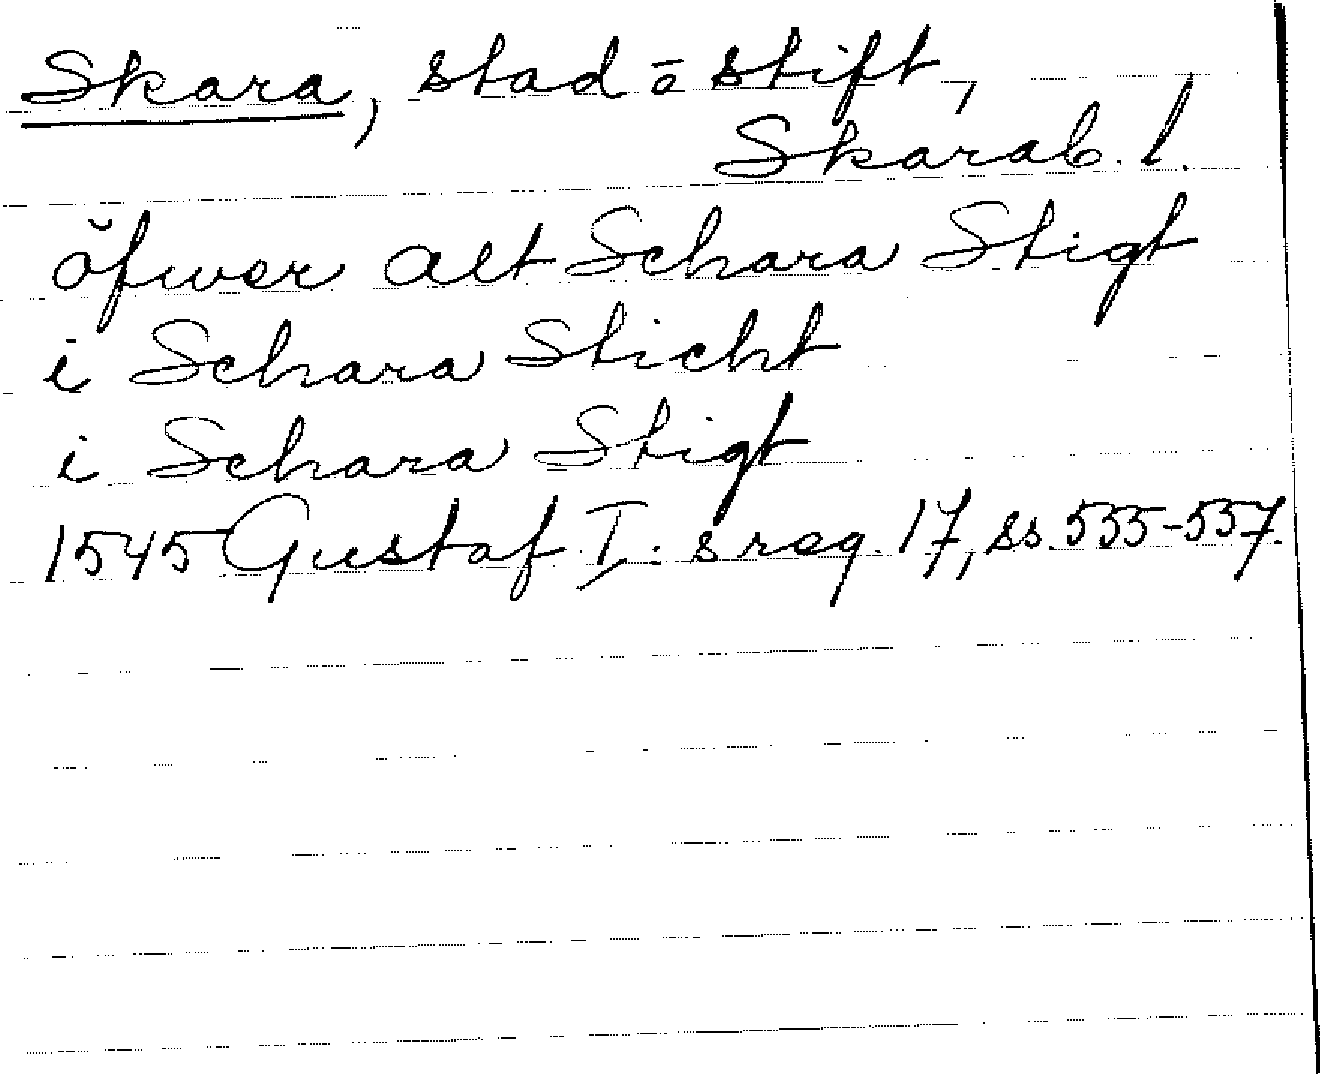 Skara, stad ō stift,
Skarab. l.
öfwer alt Schara Stigt
i Schara Sticht
i Schara Stigt
1545 Gustaf I:s reg. 17, ss. 535-537.